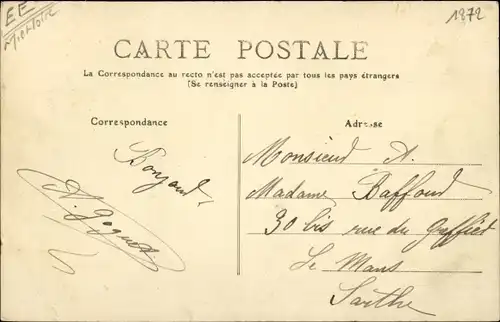 EE
1272
CARTE POSTALE
La Correspondance au recto n'est pas acceptée par tous les pays étrangers
(Se renseigner à la Poste)
Correspondance
Adresse
Monsieur A.
Madame Baffoud
30 bis rue du
Le Mans
Sarthe